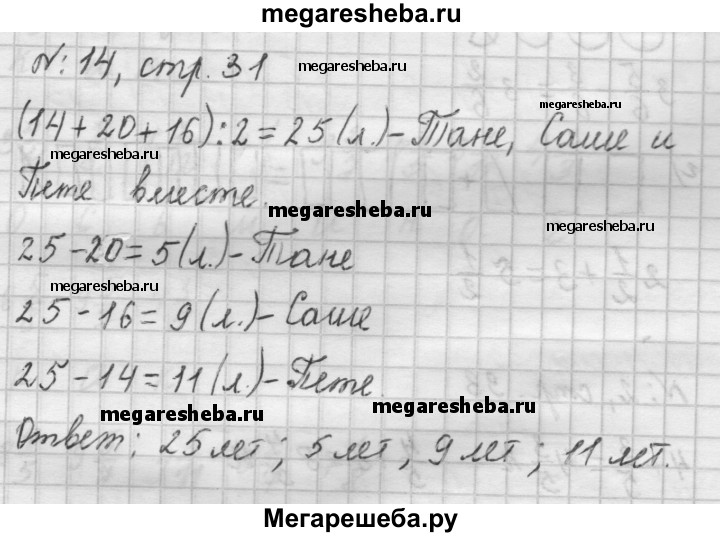 megaresheba.ru
№: 14, стр. 31 megaresheba.ru
megaresheba.ru
(14+20+16):2=25(л.)-Тане, Саше и
megaresheba.ru
Пете вместе.
megaresheba.ru megaresheba.ru
25-20=5(л.)-Тане
megaresheba.ru
25-16=9(л.)-Саше
25-14=11(л.)-Пете.
megaresheba.ru megaresheba.ru
Ответ: 25 лет; 5 лет, 9 лет; 11 лет.
Мегарешеба.ру